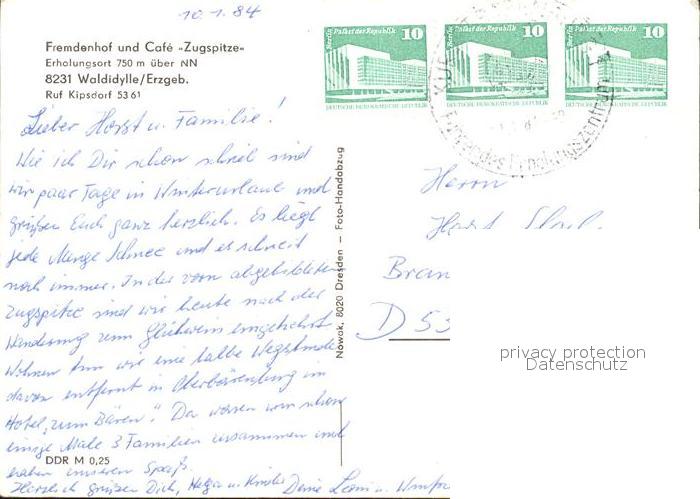 10.1.84
Fremdenhof und Café »Zugspitze«
Erholungsort 750 m über NN
8231 Waldidylle/Erzgeb.
Ruf Kipsdorf 53 61
Berlin Palast der Republik 10
DEUTSCHE DEMOKRATISCHE REPUBLIK
Berlin Palast der Republik 10
DEUTSCHE DEMOKRATISCHE REPUBLIK
Berlin Palast der Republik 10
DEUTSCHE DEMOKRATISCHE REPUBLIK
Lieber Horst u. Familie!
Wie ich Dir schon schrieb sind
wir paar Tage in Winterurlaub und
grüßen Euch ganz herzlich. Es liegt
jede Menge Schnee und es schneit
noch immer. In der vorn abgebildeten
Zugspitze sind wir heute nach der
Wanderung zum Glühwein eingekehrt.
Wohnen tun wir eine halbe Wegstunde
davon entfernt in Oberbärenburg im
Hotel „zum Bären". Da waren wir schon
einige Male 3 Familien zusammen und
haben unseren Spaß.
Herzlich grüßen Dich, Helga u. Kinder Deine
DDR M 0,25
Nowak, 8020 Dresden – Foto-Handabzug
Herrn
Horst
Bran
D 53
privacy protection
Datenschutz